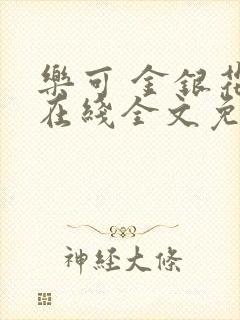 樂可 金銀花
在綫全文免
神經大條